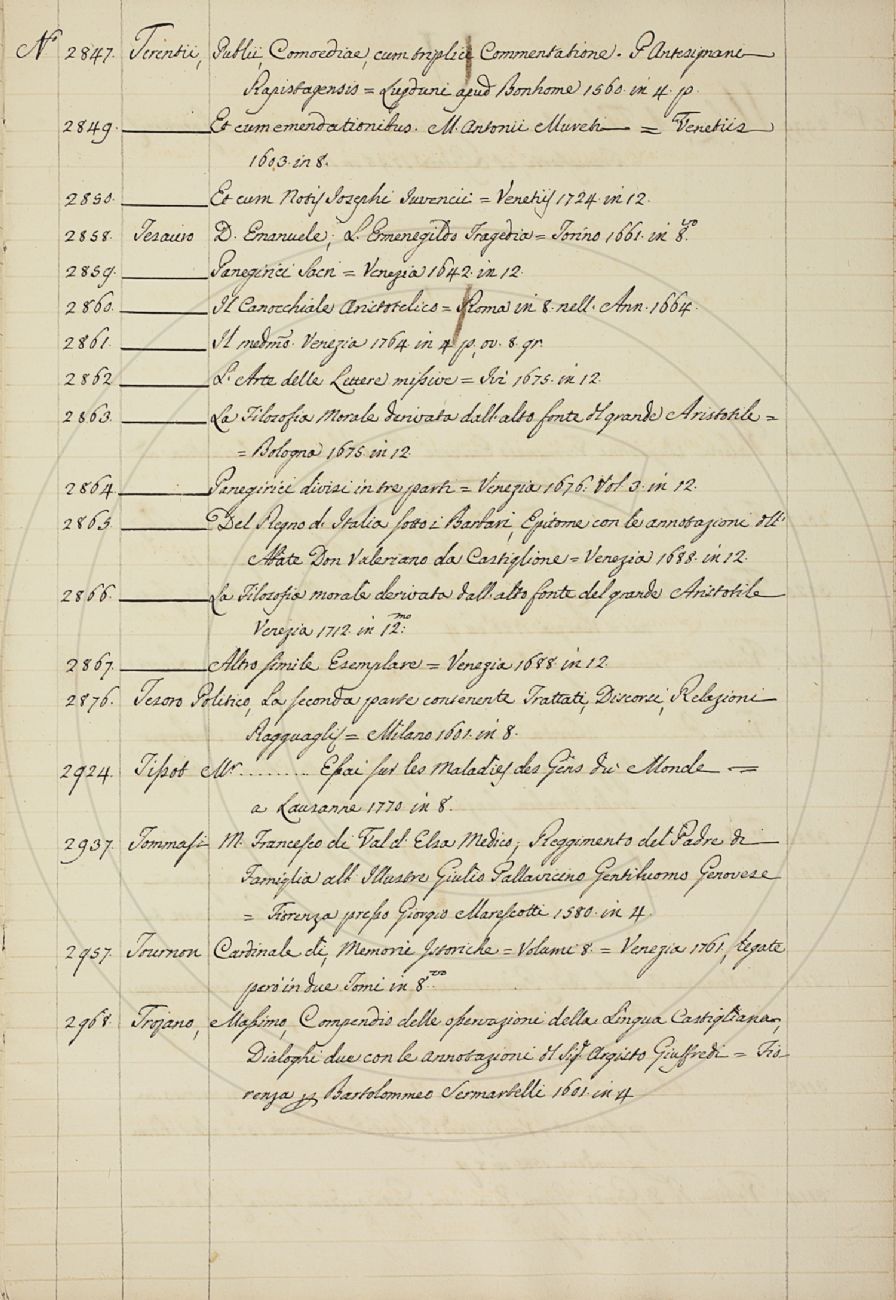 No 2847. Terentii, Publii, Comoediae, cum triplici Commentatione. P. Antesignani
Rapistagensis = Lugduni apud Bonhome 1560. in 4. p.
2849. Et cum emendationibus. M. Antonii Mureti = Venetiis
1603. in 8.
2850. Et cum Notis Josephi Juvencii = Venetiis 1724. in 12.
2858. Tesauro D. Emanuele, L. Ermenegildo Tragedia = Torino 1661. in 8.vo
2859. Panegirici Sacri = Venezia 1642. in 12.
2860. Il Canocchiale Aristotelico = Roma in 8. nell. Ann. 1664.
2861. Il medmo. Venezia 1764 in 4 p, ov. 8. gr.
2862 L. Arte delle Lettere missive = Ivi 1675. in 12.
2863. La Filosofia Morale derivata dall. alto fonte del grande Aristotile =
= Bologna 1675. in 12.
2864. Panegirici divisi in tre parti = Venezia 1676. Vol 3. in 12.
2865. Del Regno d. Italia sotto i Barbari, Epitome con le annotazioni dell.
Abate Don Valeriano da Castiglione = Venezia 1688. in 12.
2866. La Filosofia morale derivata dall. alto fonte del grande Aristotile
Venezia 1712. in 12.mo
2867. Altro simile Esemplare = Venezia 1688. in 12.
2876. Tesoro Politico, La seconda parte contenente Trattati, Discorsi, Relazioni
Ragguaglj = Milano 1601. in 8.
2924. Tissot Mr. ......... Essai sur les Maladies des Gens du Monde =
a Lauzanne 1770 in 8.
2937. Tommasi M. Francesco di Val d. Elsa Medico, Reggimento del Padre di
Famiglia all. Illustre Giulio Pallavicino Gentiluomo Genovese
= Fiorenza presso Giorgio Marescotti 1580. in 4.
2957. Tournon Cardinale di, Memorie Istoriche = Volumi 8. = Venezia 1761, legate
però in due Tomi in 8.vo
2968. Trojano, Massimo, Compendio delle osservazione della Lingua Castigliana,
Dialoghi due con le annotazioni del Sigr. Argisto Giuffredi = Fio-
renza Bartolommeo Sermartelli 1601. in 4